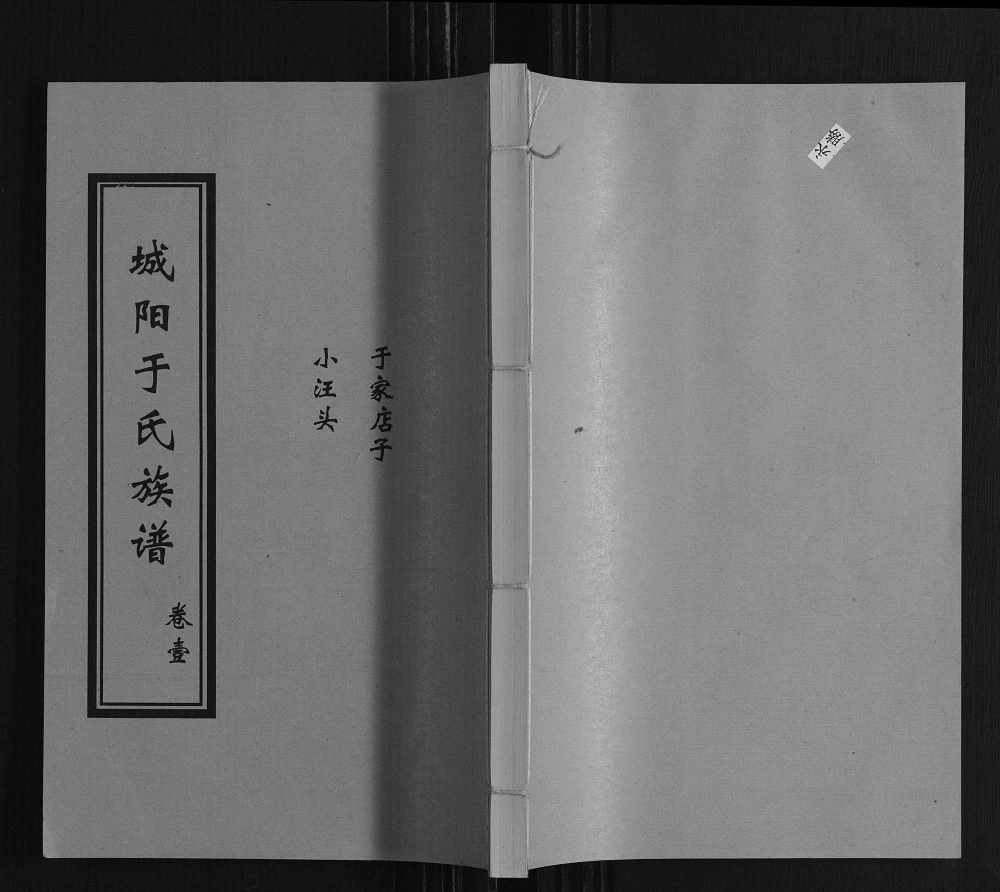 城阳于氏族谱
卷壹
于家店子
小汪头
永勝